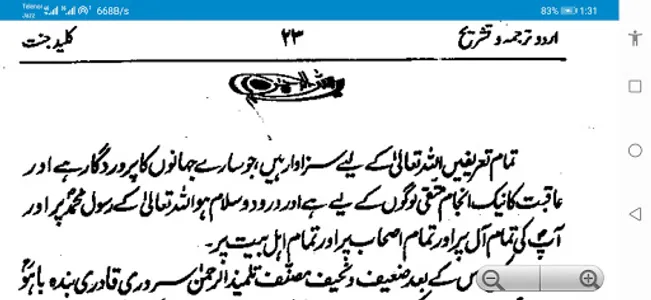 Telenor
Jazz
668B/s 83% 1:31
اردو ترجمہ و تشریح ۲۳ کلید جنت
تمام تعریفیں اللہ تعالیٰ کے لیے سزاوار ہیں، جو سارے جہانوں کا پروردگار ہے اور
عاقبت کا نیک انجام متقی لوگوں کے لیے ہے اور درود و سلام ہو اللہ تعالیٰ کے رسول محمدؐ پر اور
آپؐ کی تمام آل پر اور تمام اصحاب پر اور تمام اہل بیت پر۔
س کے بعد ضعیف و نحیف مصنّف تلمیذ الرحمٰن سروری قادری بندہ باہوؒ